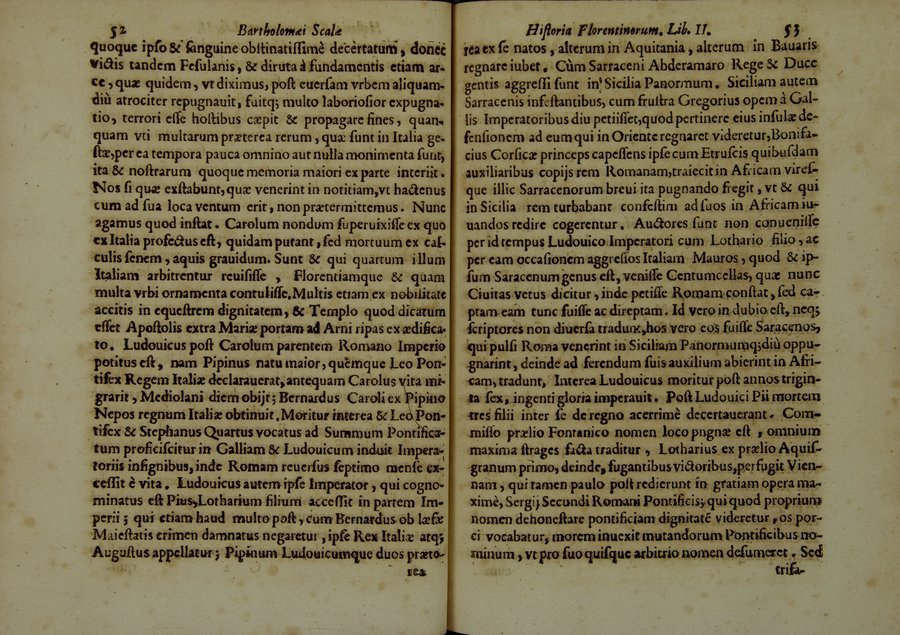 52 Bartholomæi Scalæ
quoque ipso & sanguine obstinatissimè decertatum, donec
victis tandem Fesulanis, & diruta à fundamentis etiam ar-
ce, quæ quidem, vt diximus, post euersam vrbem aliquam-
diù atrociter repugnauit, fuitq; multo laboriosior expugna-
tio, terrori esse hostibus cæpit & propagare fines, quan-
quam vti multarum præterea rerum, quæ sunt in Italia ge-
stæ, per ea tempora pauca omnino aut nulla monimenta sunt,
ita & nostrarum quoque memoria maiori ex parte interiit.
Nos si quæ exstabunt, quæ venerint in notitiam, vt hactenus
cum ad sua loca ventum erit, non prætermittemus. Nunc
agamus quod instat. Carolum nondum superuixisse ex quo
ex Italia profectus est, quidam putant, sed mortuum ex cal-
culis senem, aquis grauidum. Sunt & qui quartum illum
Italiam arbitrentur reuisisse, Florentiamque & quam
multa vrbi ornamenta contulisse. Multis etiam ex nobilitate
accitis in equestrem dignitatem, & Templo quod dicatum
esset Apostolis extra Mariæ portam ad Arni ripas exædifica-
to. Ludouicus post Carolum parentem Romano Imperio
potitus est, nam Pipinus natu maior, quēmque Leo Pon-
tifex Regem Italiæ declarauerat, antequam Carolus vita mi-
grarit, Mediolani diem obijt; Bernardus Caroli ex Pipino
Nepos regnum Italiæ obtinuit. Moritur interea & Leo Pon-
tifex & Stephanus Quartus vocatus ad Summum Pontifica-
tum proficiscitur in Galliam & Ludouicum induit Impera-
toriis insignibus, inde Romam reuersus septimo mense ex-
cessit è vita. Ludouicus autem ipse Imperator, qui cogno-
minatus est Pius, Lotharium filium accessit in partem Im-
perii; qui etiam haud multo post, cum Bernardus ob læsæ
Maiestatis crimen damnatus negaretur, ipse Rex Italiæ atq;
Augustus appellatur; Pipinum Ludouicumque duos præto-
rea
Historia Florentinorum. Lib. II. 53
rea ex se natos, alterum in Aquitania, alterum in Bauaris
regnare iubet. Cùm Sarraceni Abderamaro Rege & Duce
gentis aggressi sunt in Sicilia Panormum. Siciliam autem
Sarracenis infestantibus, cum frustra Gregorius opem à Gal-
lis Imperatoribus diu petiisset, quod pertinere eius insulæ de-
fensionem ad eum qui in Oriente regnaret videretur, Bonifa-
cius Corsicæ princeps capessens ipse cum Etruscis quibusdam
auxiliaribus copijs rem Romanam, traiecit in Africam viref-
que illic Sarracenorum breui ita pugnando fregit, vt & qui
in Sicilia rem turbabant confestim ad suos in Africam iu-
uandos redire cogerentur. Auctores sunt non conuenisse
per id tempus Ludouico Imperatori cum Lothario filio, ac
per eam occasionem aggressos Italiam Mauros, quod & ip-
sum Saracenum genus est, venisse Centumcellas, quæ nunc
Ciuitas vetus dicitur, inde petisse Romam constat, sed ca-
ptam eam tunc fuisse ac direptam. Id vero in dubio est, neq;
scriptores non diuersa tradunt, hos vero eos fuisse Saracenos,
qui pulsi Roma venerint in Siciliam Panormumq; diù oppu-
gnarint, deinde ad ferendum suis auxilium abierint in Afri-
cam, tradunt. Interea Ludouicus moritur post annos trigin-
ta sex, ingenti gloria imperauit. Post Ludouici Pii mortem
tres filii inter se de regno acerrimè decertauerant. Com-
misso prælio Fontanico nomen loco pugnæ est, omnium
maxima strages facta traditur, Lotharius ex prælio Aquis-
granum primo, deinde, fugantibus victoribus, perfugit Vien-
nam, qui tamen paulo post redierunt in gratiam opera ma-
ximè, Sergij Secundi Romani Pontificis; qui quod proprium
nomen dehonestare pontificiam dignitatē videretur, os por-
ci vocabatur, morem inuexit mutandorum Pontificibus no-
minum, vt pro suo quisque arbitrio nomen desumeret. Sed
trifa-